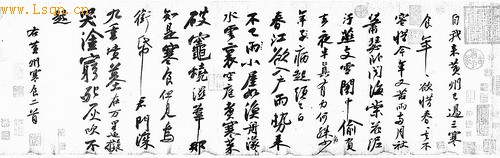 w.Lsqn.cn
自我來黃州已過三寒
食年々欲惜春々去不
容惜今年又苦雨兩月秋
蕭瑟臥聞海棠花泥
汙燕支雪闇中偷負
去夜半真有力何殊少
年子病起頭已白
春江欲入戶雨勢來
不已雨小屋如漁舟濛々
水雲裏空庖煮寒菜
破竈燒濕葦那
知是寒食但見烏
銜帋君門深
九重墳墓在万里也擬
哭塗窮死灰吹不
起
右黃州寒食二首